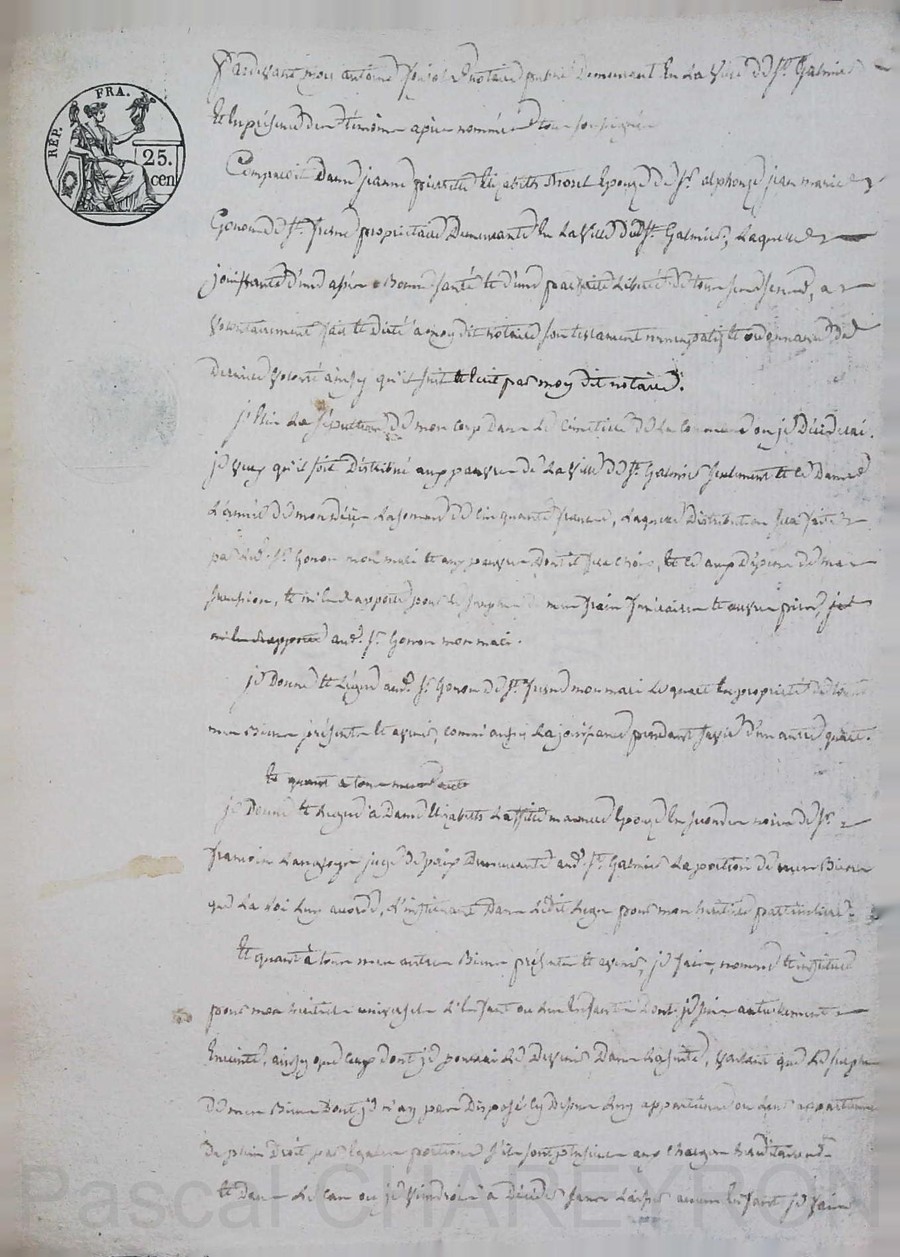 REP. FRA.
25.
cen
Pardevant moy antoine notaire public Demeurant En La Ville de St. Galmier
Et En présence des témoins après nommés et soussignés
Comparoit Dame jeanne pierrette Elizabeth Epouze de Sr. alphonze jean marie
Gonon de St. fresne proprietaire Demeurante En La Ville de St. Galmier, Laquelle
jouissante d'une assés Bonne santé et d'une parfaite Liberté de tous ses sens, a
volontairement fait et dicté à moy dit notaire son testament nuncupatif et ordonnance de
Derniere volonté ainsy qu'il suit et Ecrit par moy dit notaire.
je Elis La sépulture de mon corps Dans Le Cimetière de La Commune ou je Décéderai.
je veux qu'il soit Distribué aux pauvres de La Ville de St. Galmier seulement et ce Dans
L'année de mon décès La somme de Cinquante francs, Laquelle Distribution sera faite
par Led. Sr. Gonon mon mari et aux pauvres Dont il fera choix, et ce aux Dépens de ma
succession, et m'en rapporte pour Le surplus de mes frais funéraires et œuvres pies,
m'en rapporte aud. Sr. Gonon mon mari.
je Donne et Légue aud. Sr. Gonon de St. fresne mon mari Le quart En propriété de tous
mes Biens présents et avenir, comme aussy La jouissance pendant sa vie d'un autre quart.
Et quant à tous mes
je Donne et Legue à Dame Elizabeth Epouze En secondes noces de Sr.
francois juge de paix Demeurante aud. St. Galmier La portion de mes Biens
que La Loi Luy accorde, L'instituant Dans Ledit Legs pour mon héritiere particuliere.
Et quant à tous mes autres Biens présents et avenir, je fais, nomme et institue
pour mon héritier universel L'Enfant ou Les Enfants Dont je suis actuellement
Enceinte, ainsy que ceux dont je pourrai Le Devenir Dans La suite, voulant que Le surplus
de mes Biens Dont je n'ay pas Disposé cy Dessus Luy appartienne ou Leur appartienne
de plein Droit par Egales portions s'ils sont plusieurs aux charges héréditaires
Et Dans Le Cas ou je viendrois à Décéder sans Laisser aucun Enfant je fais
Pascal CHAREYRON